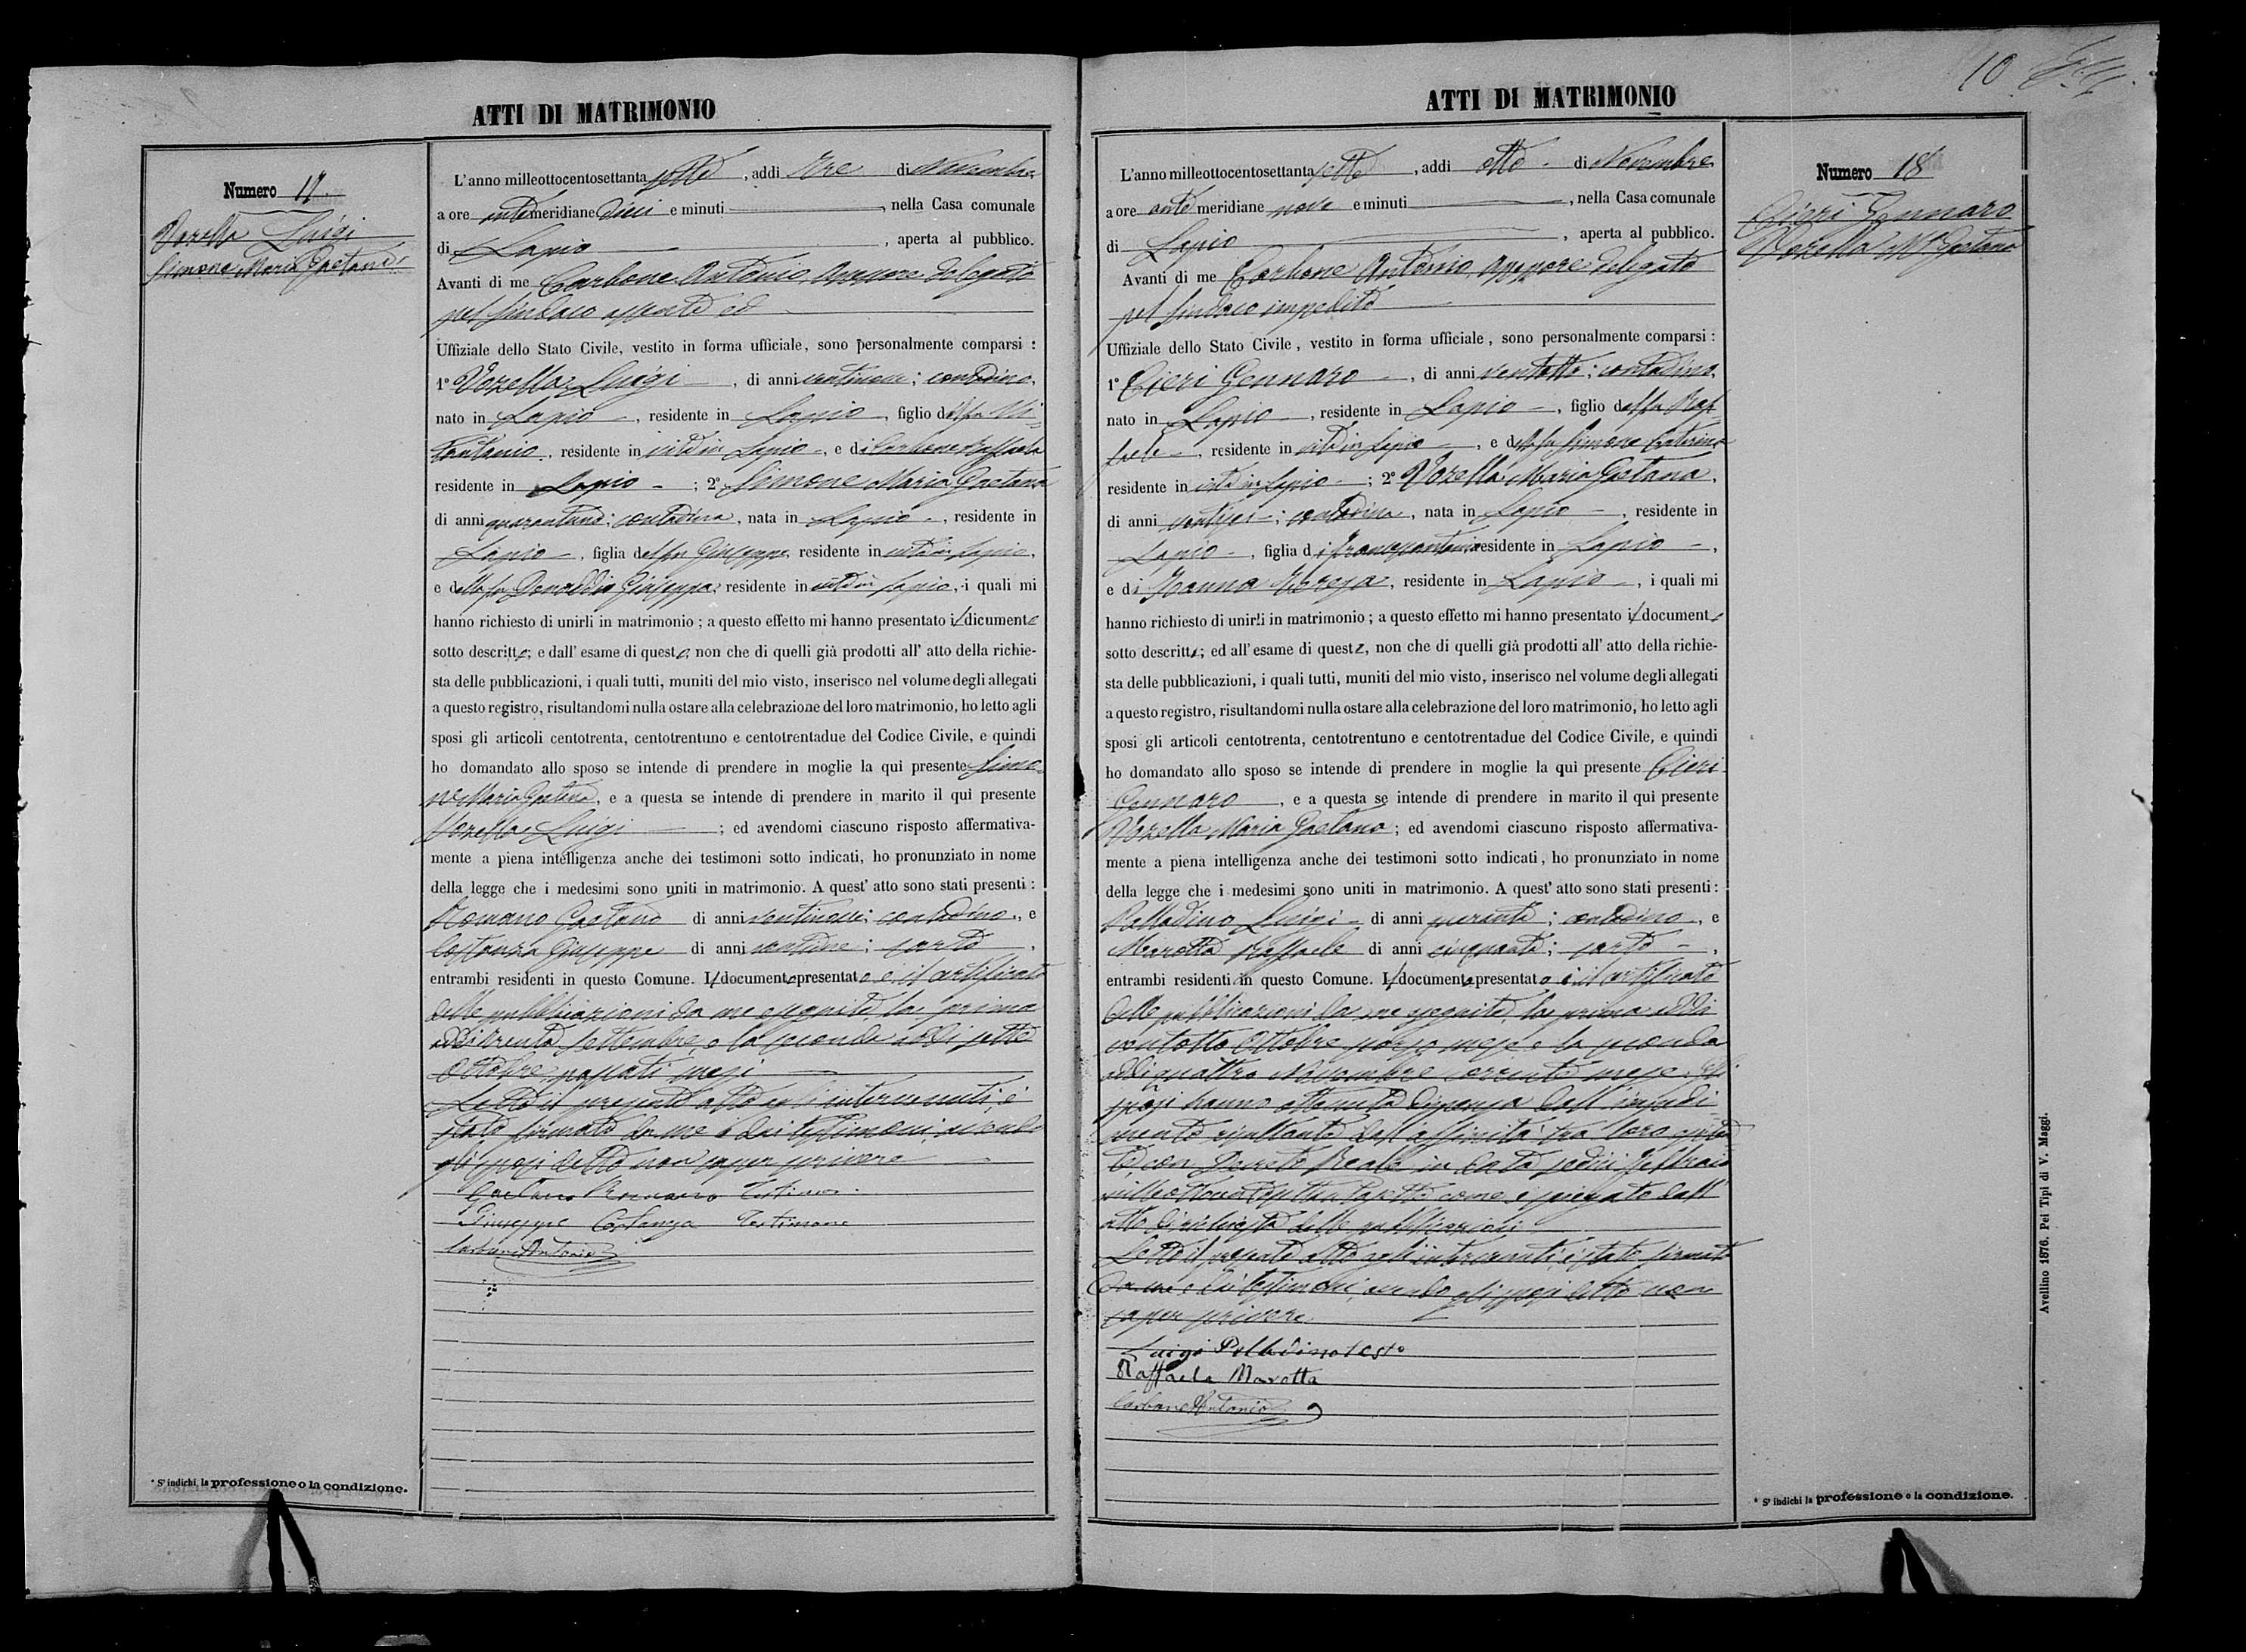 ATTI DI MATRIMONIO
Numero 17
Vozella Luigi
Simone Maria Gaetana
L'anno milleottocentosettanta sette, addi tre di Novembre
a ore antemeridiane dieci e minuti , nella Casa comunale
di Lapio , aperta al pubblico.
Avanti di me Carbone Antonio, Assessore delegato
pel Sindaco assente ed
Uffiziale dello Stato Civile, vestito in forma ufficiale, sono personalmente comparsi :
1° Vozella Luigi , di anni ventinove; contadino,
nato in Lapio , residente in Lapio , figlio del fu Vi-
tantonio , residente in vita in Lapio , e di Carbone Raffaela
residente in Lapio ; 2° Simone Maria Gaetana
di anni quarantuno; contadina, nata in Lapio , residente in
Lapio , figlia del fu Giuseppe, residente in vita in Lapio,
e della fu Giuseppa, residente in vita in Lapio, i quali mi
hanno richiesto di unirli in matrimonio ; a questo effetto mi hanno presentato il dicumento
sotto descritto; e dall' esame di questo; non che di quelli già prodotti all' atto della richie-
sta delle pubblicazioni, i quali tutti, muniti del mio visto, inserisco nel volume degli allegati
a questo registro, risultandomi nulla ostare alla celebrazione del loro matrimonio, ho letto agli
sposi gli articoli centotrenta, centotrentuno e centotrentadue del Codice Civile, e quindi
ho domandato allo sposo se intende di prendere in moglie la qui presente Simo-
ne Maria Gaetana, e a questa se intende di prendere in marito il qui presente
Vozella Luigi ; ed avendomi ciascuno risposto affermativa-
mente a piena intelligenza anche dei testimoni sotto indicati, ho pronunziato in nome
della legge che i medesimi sono uniti in matrimonio. A quest' atto sono stati presenti :
Romano Gaetano di anni ventinove; contadino, e
Costanza Giuseppe di anni ; sarto ,
entrambi residenti in questo Comune. Il documento presentato è il certificato
delle pubblicazioni da me eseguite la prima
addi trenta Settembre, e la seconda addi sette
Ottobre passati mesi
Letto il presente atto agl'intervenuti, è
stato firmato da me e dai testimoni avendo
gli sposi detto non saper scrivere
Gaetano Romano Testimone
Giuseppe Costanza Testimone
Carbone Antonio
* Si indichi la professione o la condizione.
ATTI DI MATRIMONIO
10
Numero 18
Cieri Gennaro
Vozella Ma Gaetana
L'anno milleottocentosettanta sette , addi otto di Novembre
a ore antemeridiane nove e minuti , nella Casa comunale
di Lapio , aperta al pubblico.
Avanti di me Carbone Antonio Assessore delegato
pel Sindaco impedito
Uffiziale dello Stato Civile, vestito in forma ufficiale, sono personalmente comparsi :
1° Cieri Gennaro , di anni ventotto; contadino,
nato in Lapio , residente in Lapio , figlio del fu Raf-
faele , residente in vita in Lapio , e della fu Simone Caterina
residente in vita in Lapio ; 2° Vozella Maria Gaetana,
di anni ventisei ; contadina, nata in Lapio , residente in
Lapio , figlia di Francescantonio residente in Lapio ,
e di Teresa, residente in Lapio , i quali mi
hanno richiesto di unirli in matrimonio ; a questo effetto mi hanno presentato il documento
sotto descritto; ed all' esame di questo, non che di quelli già prodotti all' atto della richie-
sta delle pubblicazioni, i quali tutti, muniti del mio visto, inserisco nel volume degli allegati
a questo registro, risultandomi nulla ostare alla celebrazione del loro matrimonio, ho letto agli
sposi gli articoli centotrenta, centotrentuno e centotrentadue del Codice Civile, e quindi
ho domandato allo sposo se intende di prendere in moglie la qui presente Cieri
Gennaro , e a questa se intende di prendere in marito il qui presente
Vozella Maria Gaetana ; ed avendomi ciascuno risposto affermativa-
mente a piena intelligenza anche dei testimoni sotto indicati, ho pronunziato in nome
della legge che i medesimi sono uniti in matrimonio. A quest' atto sono stati presenti :
Palladino Luigi di anni ; contadino , e
Marotta Raffaele di anni cinquanta; sarto ,
entrambi residenti in questo Comune. Il documento presentato è il certificato
delle pubblicazioni da me eseguite, la prima addi
ventotto Ottobre scorso mese e la seconda
addi quattro Novembre corrente mese. Gli
sposi hanno ottenuta dispensa dall'impedi-
mento risultante dall'affinità tra loro
con Decreto Reale in data sedici Febbraio
milleottocentosettantasette come è spiegato dall'
atto di richiesta delle pubblicazioni
Letto il presente atto agli intervenuti, è stato firmato
da me e dai testimoni, avendo gli sposi detto non
saper scrivere.
Luigi Palladino testo
Raffaele Marotta
Carbone Antonio
* Si indichi la professione o la condizione.
Avellino 1876. Pei Tipi di V. Maggi.